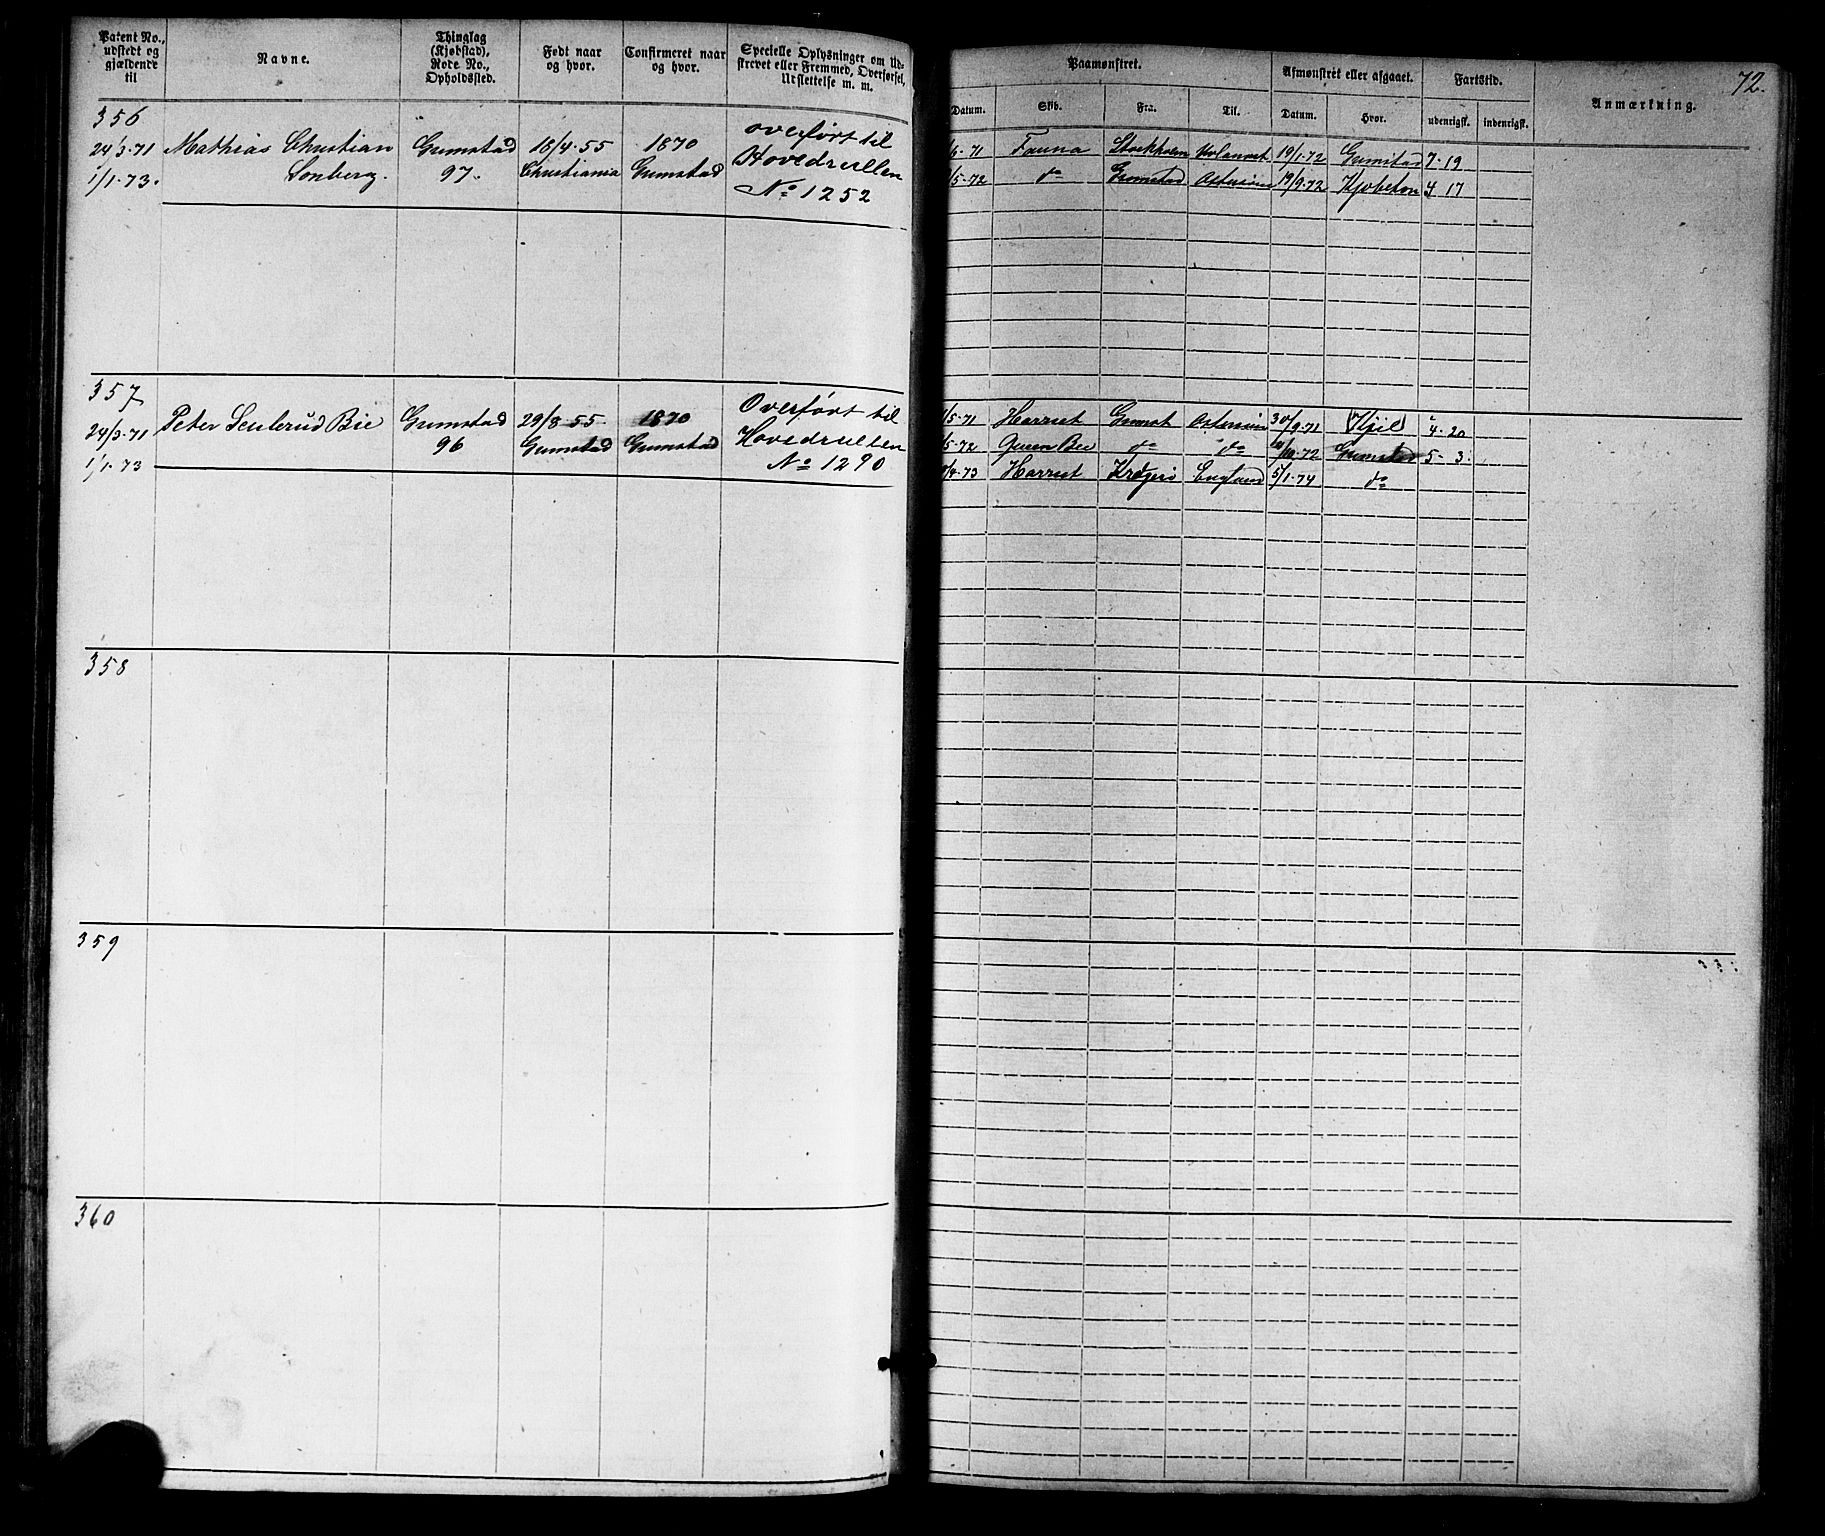 Patent No., udstedt og gjældende til
Navne.
Thinglag (Kjøbstad), Rode No., Opholdssted.
Født naar og hvor.
Confirmeret naar og hvor.
Specielle Oplysninger om Udskrevet eller Fremmed, Overførsel, Udslettelse m. m.
Paamønstret.
Afmønstret eller afgaaet.
Fartstid.
Anmærkning.
72.
Datum.
Skib.
Fra.
Til.
Datum.
Hvor.
udenrigsk.
indenrigsk.
356
24/3-71 Mathias Christian Grimstad 18/4-55 1870 overført til
1/1-73. Sonberg. 97. Christiania Grimstad Hovedrullen
No 1252
/6-71 Fauna Stockholm 19/1-72 Grimstad 7-19
/5-72 do Grimstad 19/9-72 4 17
357
24/3-71 Peter Bie Grimstad 29/8-55 1870 Overført til
1/1-73 96 Grimstad Grimstad Hovedrullen
No 1290
/5-71 Harriet Grimst 30/9-71 4-20
/5-72 Queen Bee do do /10-72 Grimstad 5-3
/4-73 Harriet Kragerø England 5/1-74 do
358
359
360